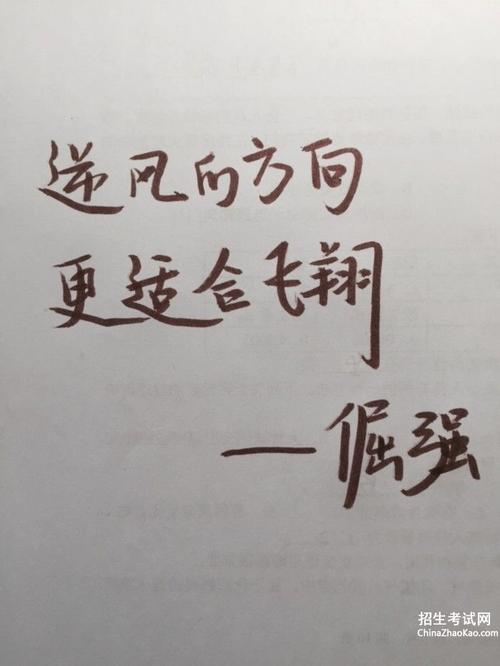 逆风的方向
更适合飞翔
—倔强
招生考试网
ChinaZhaoKao.com